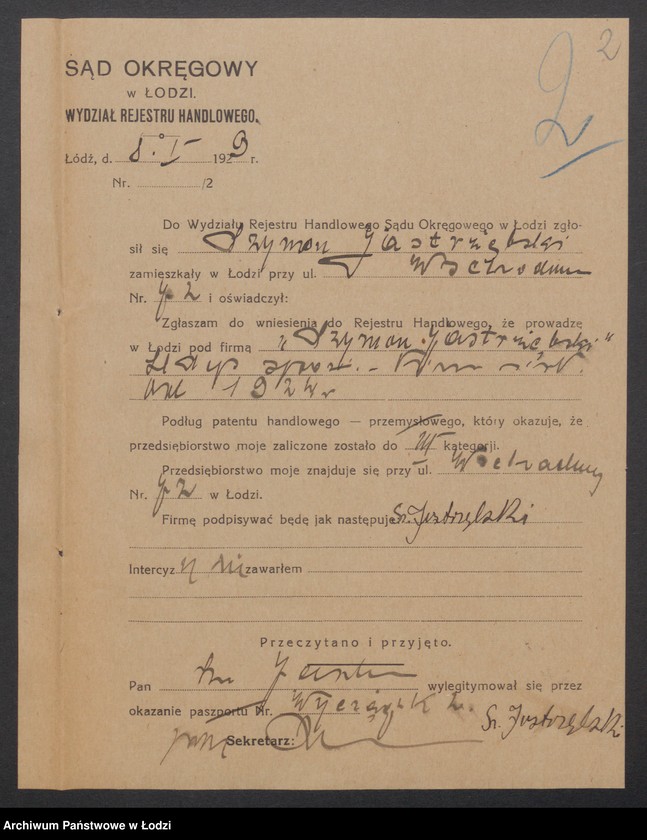 2
2
SĄD OKRĘGOWY
W ŁODZI.
WYDZIAŁ REJESTRU HANDLOWEGO.
Łódź, d. 8. I 1929 r.
Nr. /2
Do Wydziału Rejestru Handlowego Sądu Okręgowego w Łodzi zgło-
sił się Szymon Jastrzębski
zamieszkały w Łodzi przy ul. Wschodnia
Nr. 72 i oświadczył:
Zgłaszam do wniesienia do Rejestru Handlowego, że prowadzę
w Łodzi pod firmą „Szymon Jastrzębski"
od 1922 r
Podług patentu handlowego — przemysłowego, który okazuje, że
przedsiębiorstwo moje zaliczone zostało do III kategorji.
Przedsiębiorstwo moje znajduje się przy ul. Wschodniej
Nr. 72 w Łodzi.
Firmę podpisywać będę jak następuje: Sz. Jastrzębski
Intercyzy nie zawarłem
Przeczytano i przyjęto.
Pan wylegitymował się przez
okazanie paszportu Nr.
Sz. Jastrzębski
Sekretarz:
Archiwum Państwowe w Łodzi